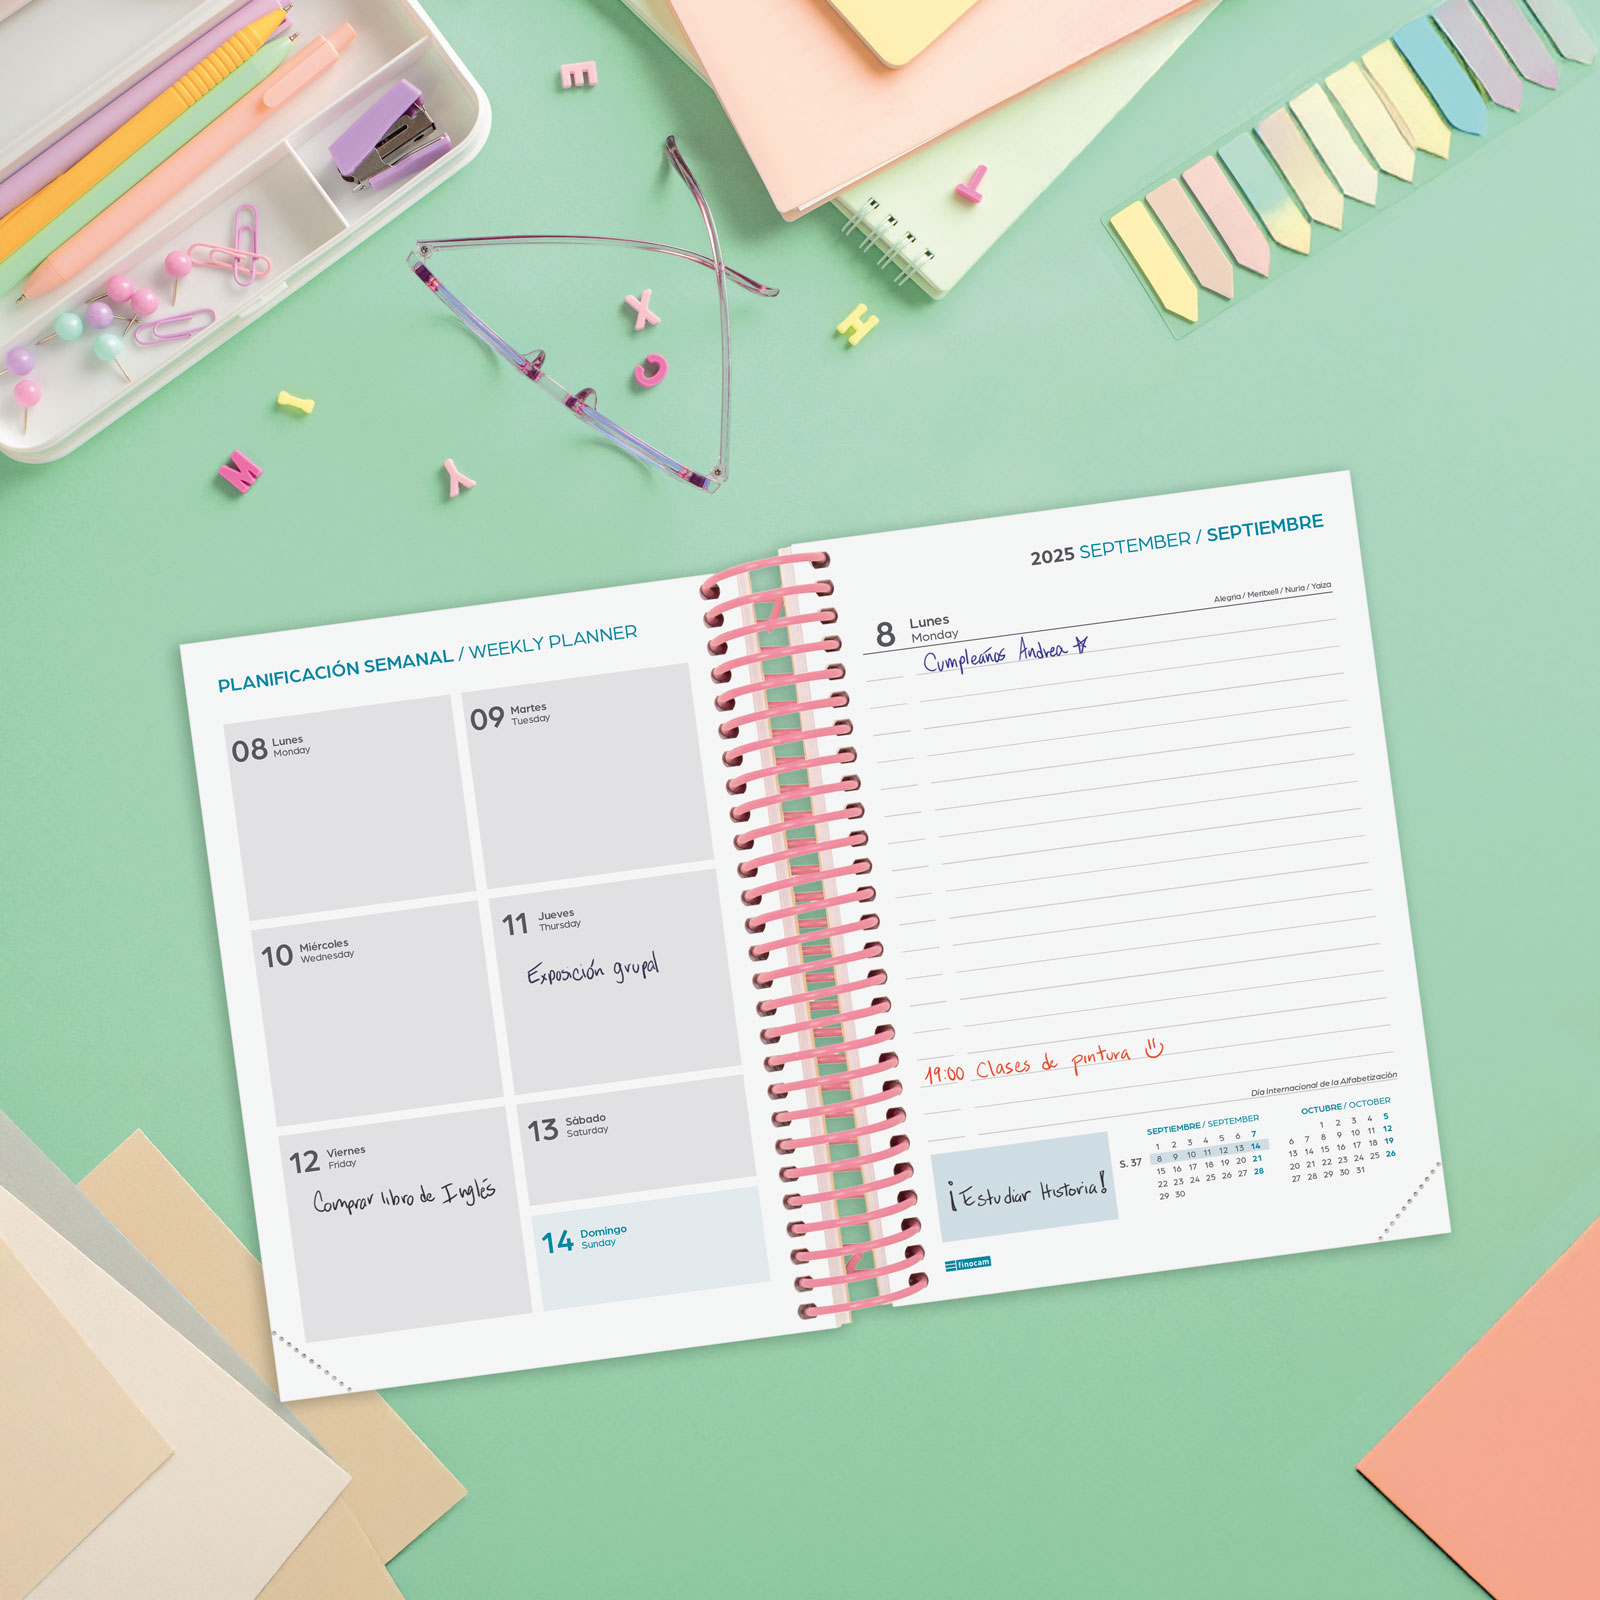 E
T
X
H
C
I
M
Y
PLANIFICACIÓN SEMANAL / WEEKLY PLANNER
08 Lunes
Monday
09 Martes
Tuesday
10 Miércoles
Wednesday
11 Jueves
Thursday
Exposición grupal
12 Viernes
Friday
Comprar libro de Inglés
13 Sábado
Saturday
14 Domingo
Sunday
2025 SEPTEMBER / SEPTIEMBRE
Alegria / Meritxell / Nuria / Yaiza
8 Lunes
Monday
Cumpleaños Andrea
19:00 Clases de pintura
Día Internacional de la Alfabetización
¡Estudiar Historia!
S. 37
SEPTIEMBRE / SEPTEMBER
1 2 3 4 5 6 7
8 9 10 11 12 13 14
15 16 17 18 19 20 21
22 23 24 25 26 27 28
29 30
OCTUBRE / OCTOBER
1 2 3 4 5
6 7 8 9 10 11 12
13 14 15 16 17 18 19
20 21 22 23 24 25 26
27 28 29 30 31
finocam